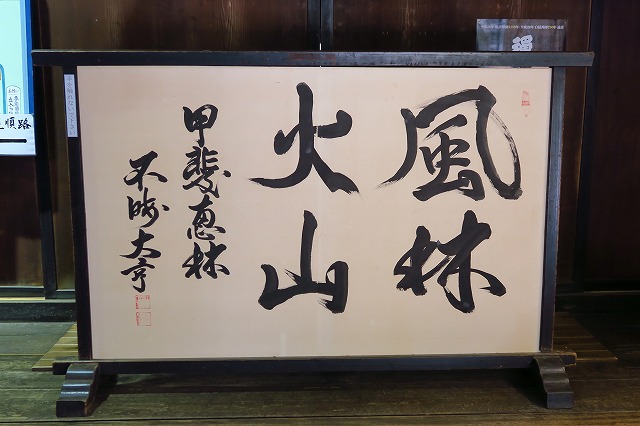 風林
火山
甲斐恵林
不昧大亨
順路